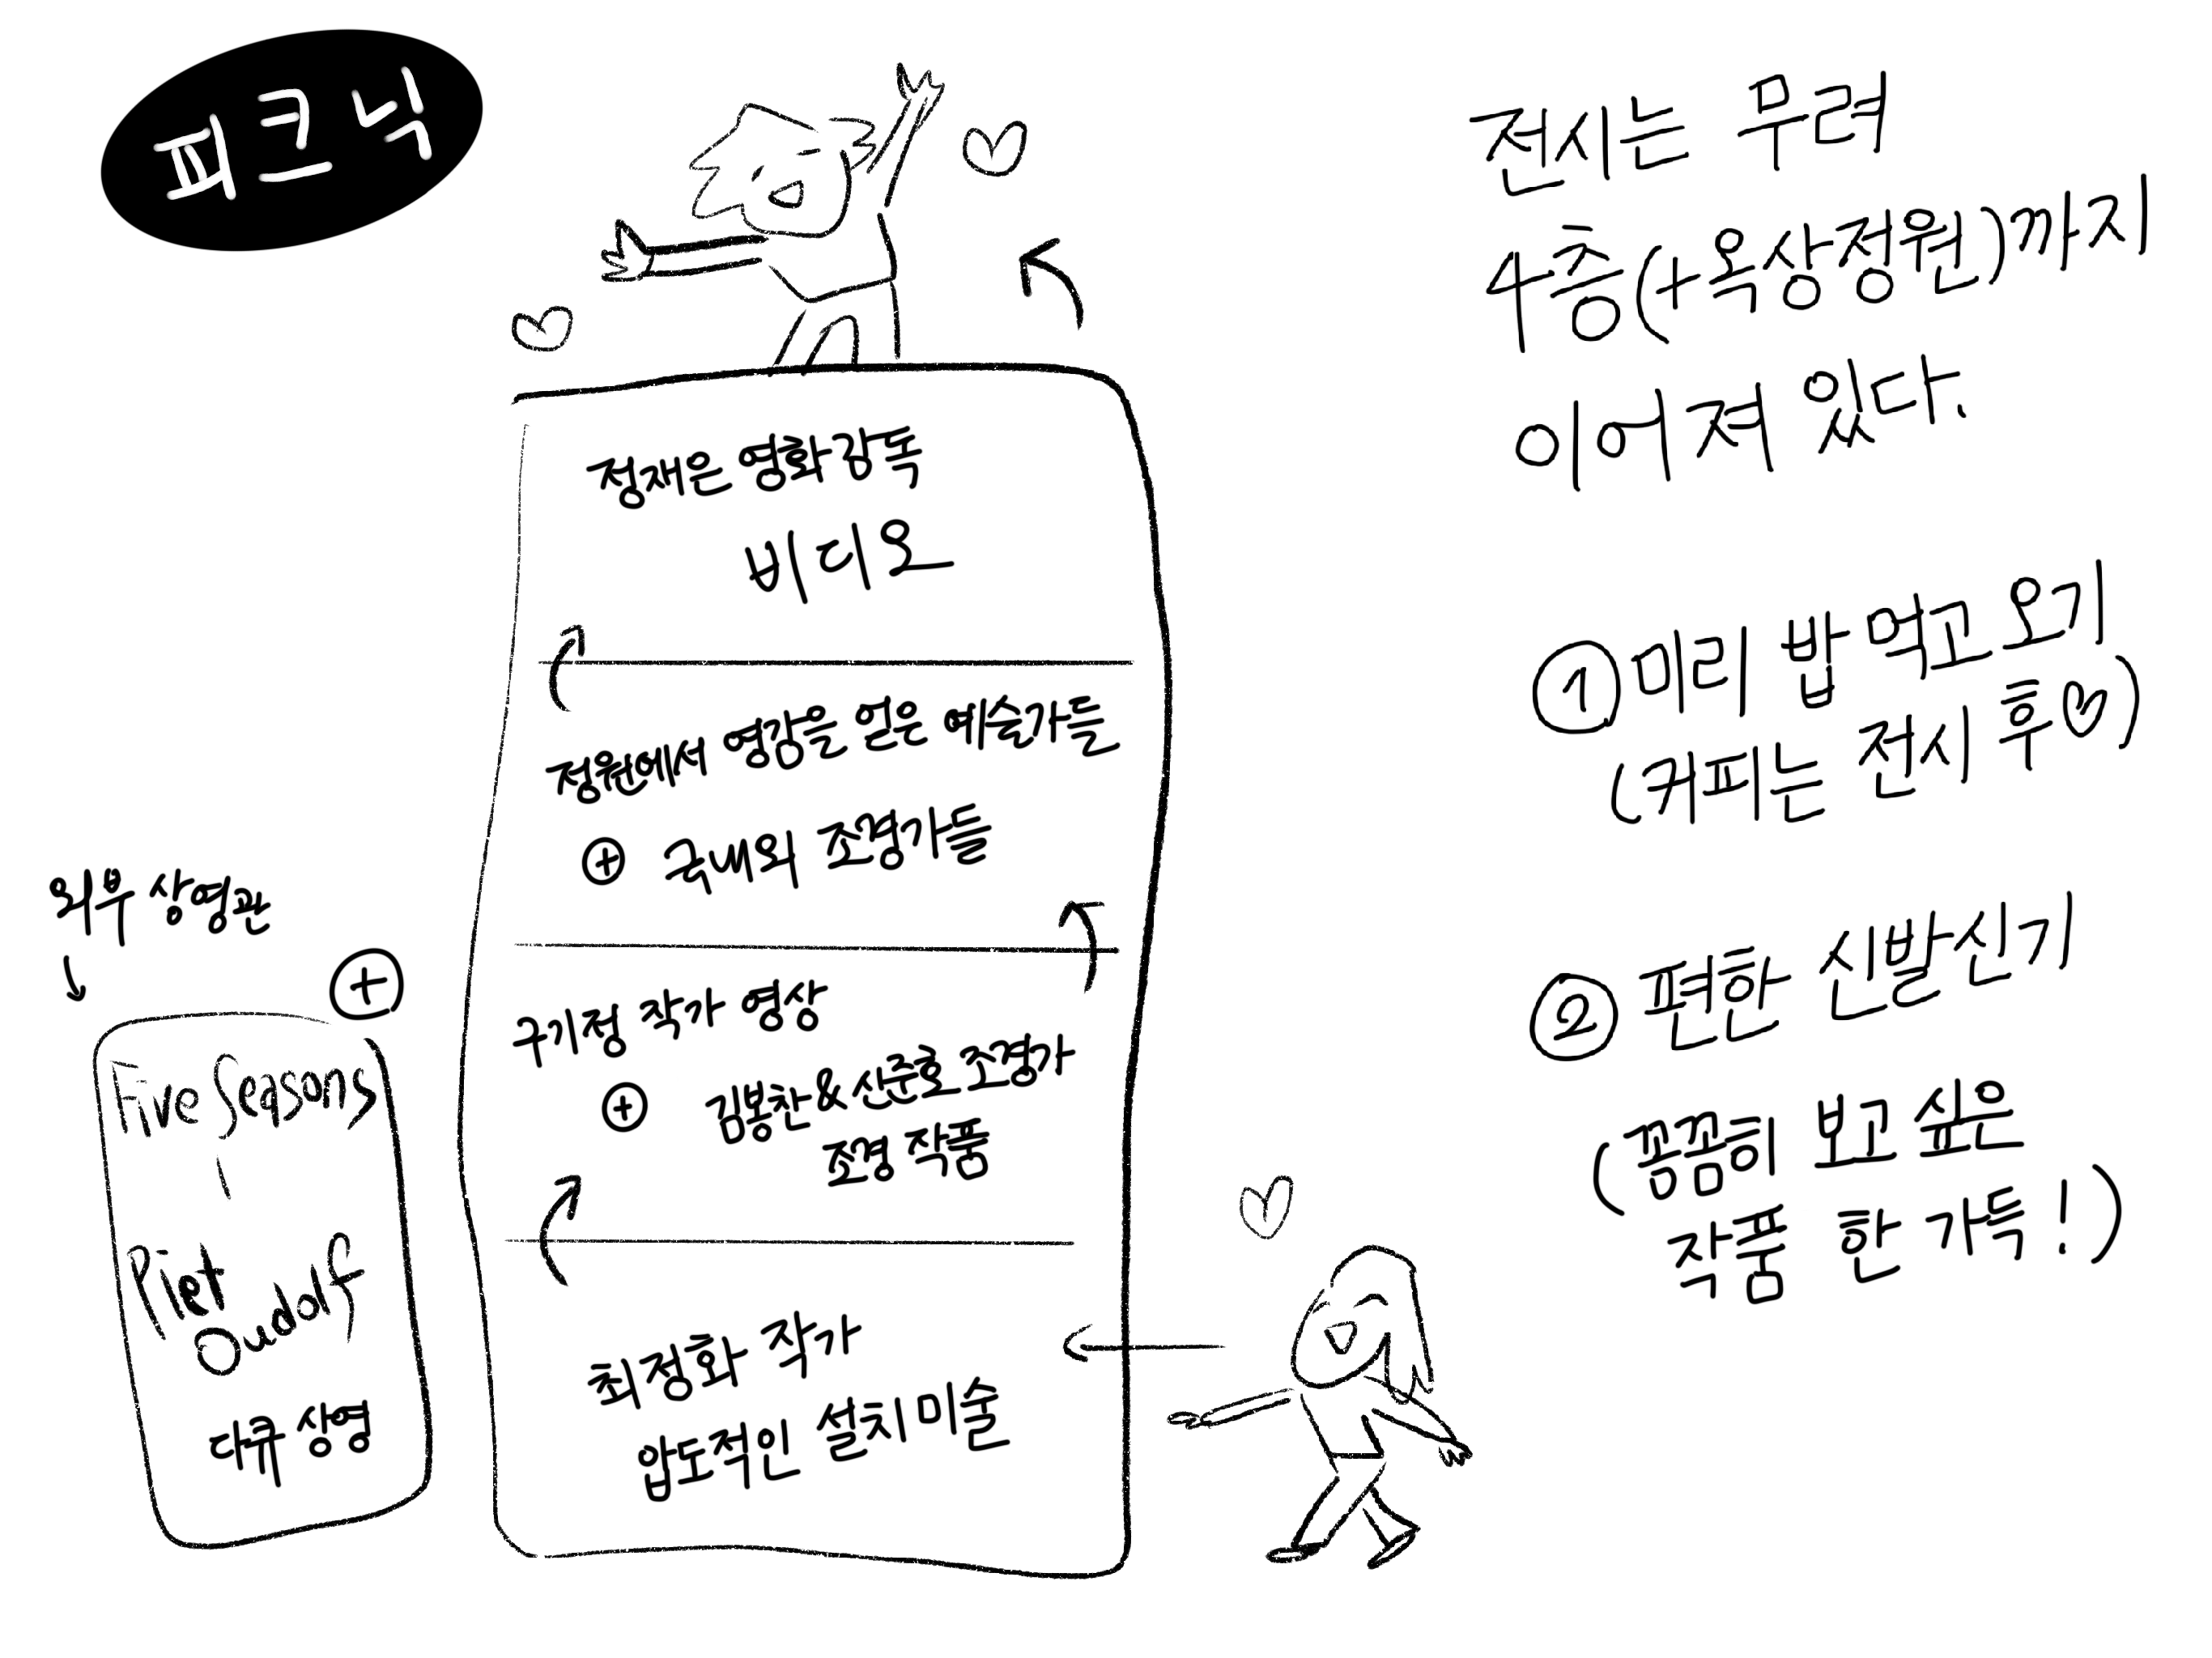 피크닉
전시는 무려
4층(+옥상정원)까지
이어져 있다.
정재은 영화감독
비디오
정원에서 영감을 얻은 예술가들
⊕ 국내외 조경가들
구기정 작가 영상
⊕ 김봉찬&신준호 조경가
조경 작품
최정화 작가
압도적인 설치미술
외부 상영관
⊕
Five Seasons
-
Piet
Oudolf
다큐 상영
① 미리 밥 먹고 오기
(커피는 전시 후♡)
② 편한 신발신기
(꼼꼼히 보고 싶은
작품 한 가득!)